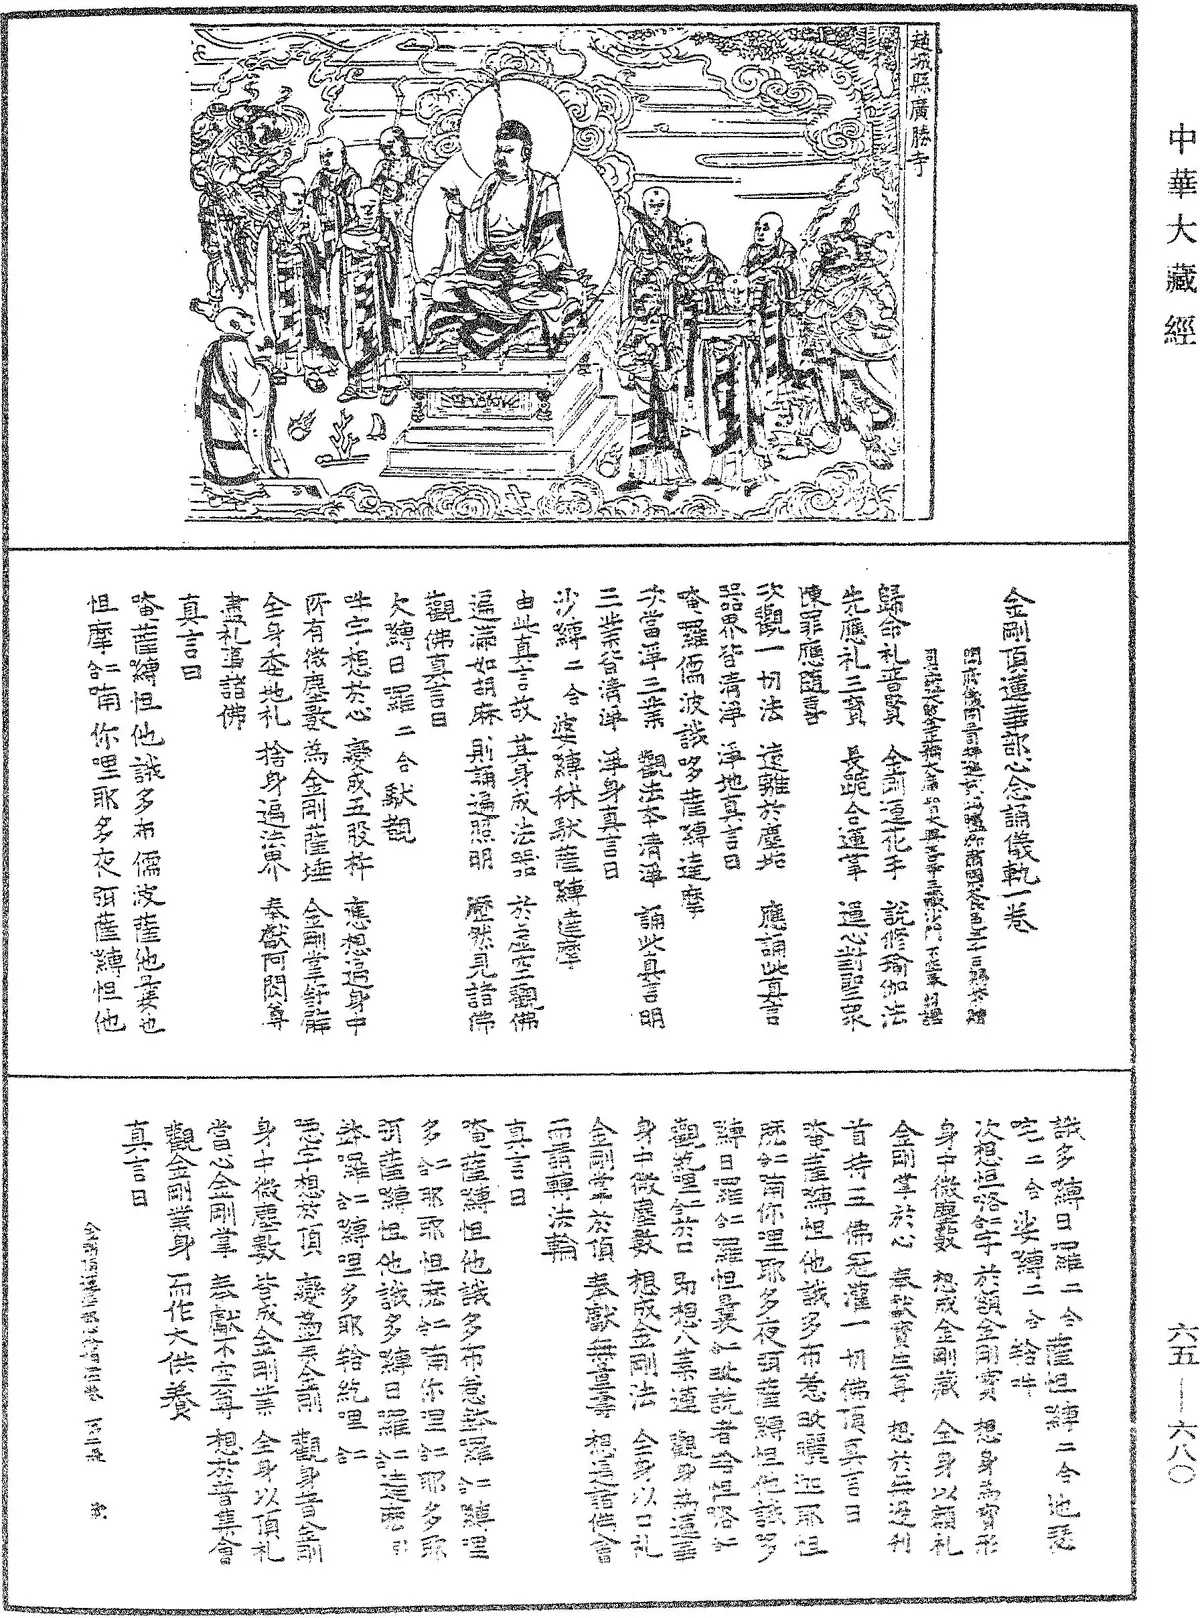 中華大藏經
趙城縣廣勝寺
金剛頂蓮華部心念誦儀軌一卷
歸命礼普賢 金剛蓮花手 說修瑜伽法
先應礼三寶 長跪合蓮華 運心對聖眾
陳罪應隨喜
次觀一切法 遠離於塵垢 應誦此真言
器界皆清淨 淨地真言曰
唵羅儒波誐哆薩縛達摩
次當淨三業 觀法本清淨 誦此真言明
三業皆清淨 淨身真言曰
沙縛二合婆縛秫馱薩縛達摩
由此真言故 其身成法器 於虛空觀佛
遍滿如胡麻 則誦遍照明 歷然見諸佛
觀佛真言曰
欠縛日羅二合馱覩
吽字想於心 變成五股杵 應想遍身中
所有微塵數 為金剛薩埵 金剛掌舒臂
全身委地礼 捨身遍法界 奉獻阿閦尊
盡礼事諸佛
真言曰
唵薩縛怛他誐多布儒波薩他曩也
怛摩二合喃你哩耶多夜弭薩縛怛他
誐多縛日羅二合薩怛縛二合地瑟
吒二合娑縛二合給吽
次想怛洛二合字 於額金剛寶 想身為寶形
身中微塵數 想成金剛藏 全身以額礼
金剛掌於心 奉獻寶生尊 想於無邊刹
首持三佛冠 灌一切佛頂 真言曰
唵薩縛怛他誐多布惹毗曬迦耶怛
麼二合南你哩耶多夜弭薩縛怛他誐多
縛日羅二合羅怛曩二合毗詵者給怛洛二合
觀紇哩二合於口 即想八葉蓮 觀身為蓮華
身中微塵數 想成金剛法 全身以口礼
金剛掌於頂 奉獻無量壽 想遍諸佛會
而請轉法輪
真言曰
唵薩縛怛他誐多布惹鉢羅二合縛哩
多二合耶耶怛麼二合南你哩二合耶多耶
弭薩縛怛他誐多縛日羅二合達麼
鉢羅二合縛哩多耶給紇哩二合
惡字想於頂 變為業金剛 觀身普金剛
身中微塵數 皆成金剛業 全身以頂礼
當心金剛掌 奉獻不空尊 想於普集會
觀金剛業身 而作大供養
真言曰
六五—六八〇